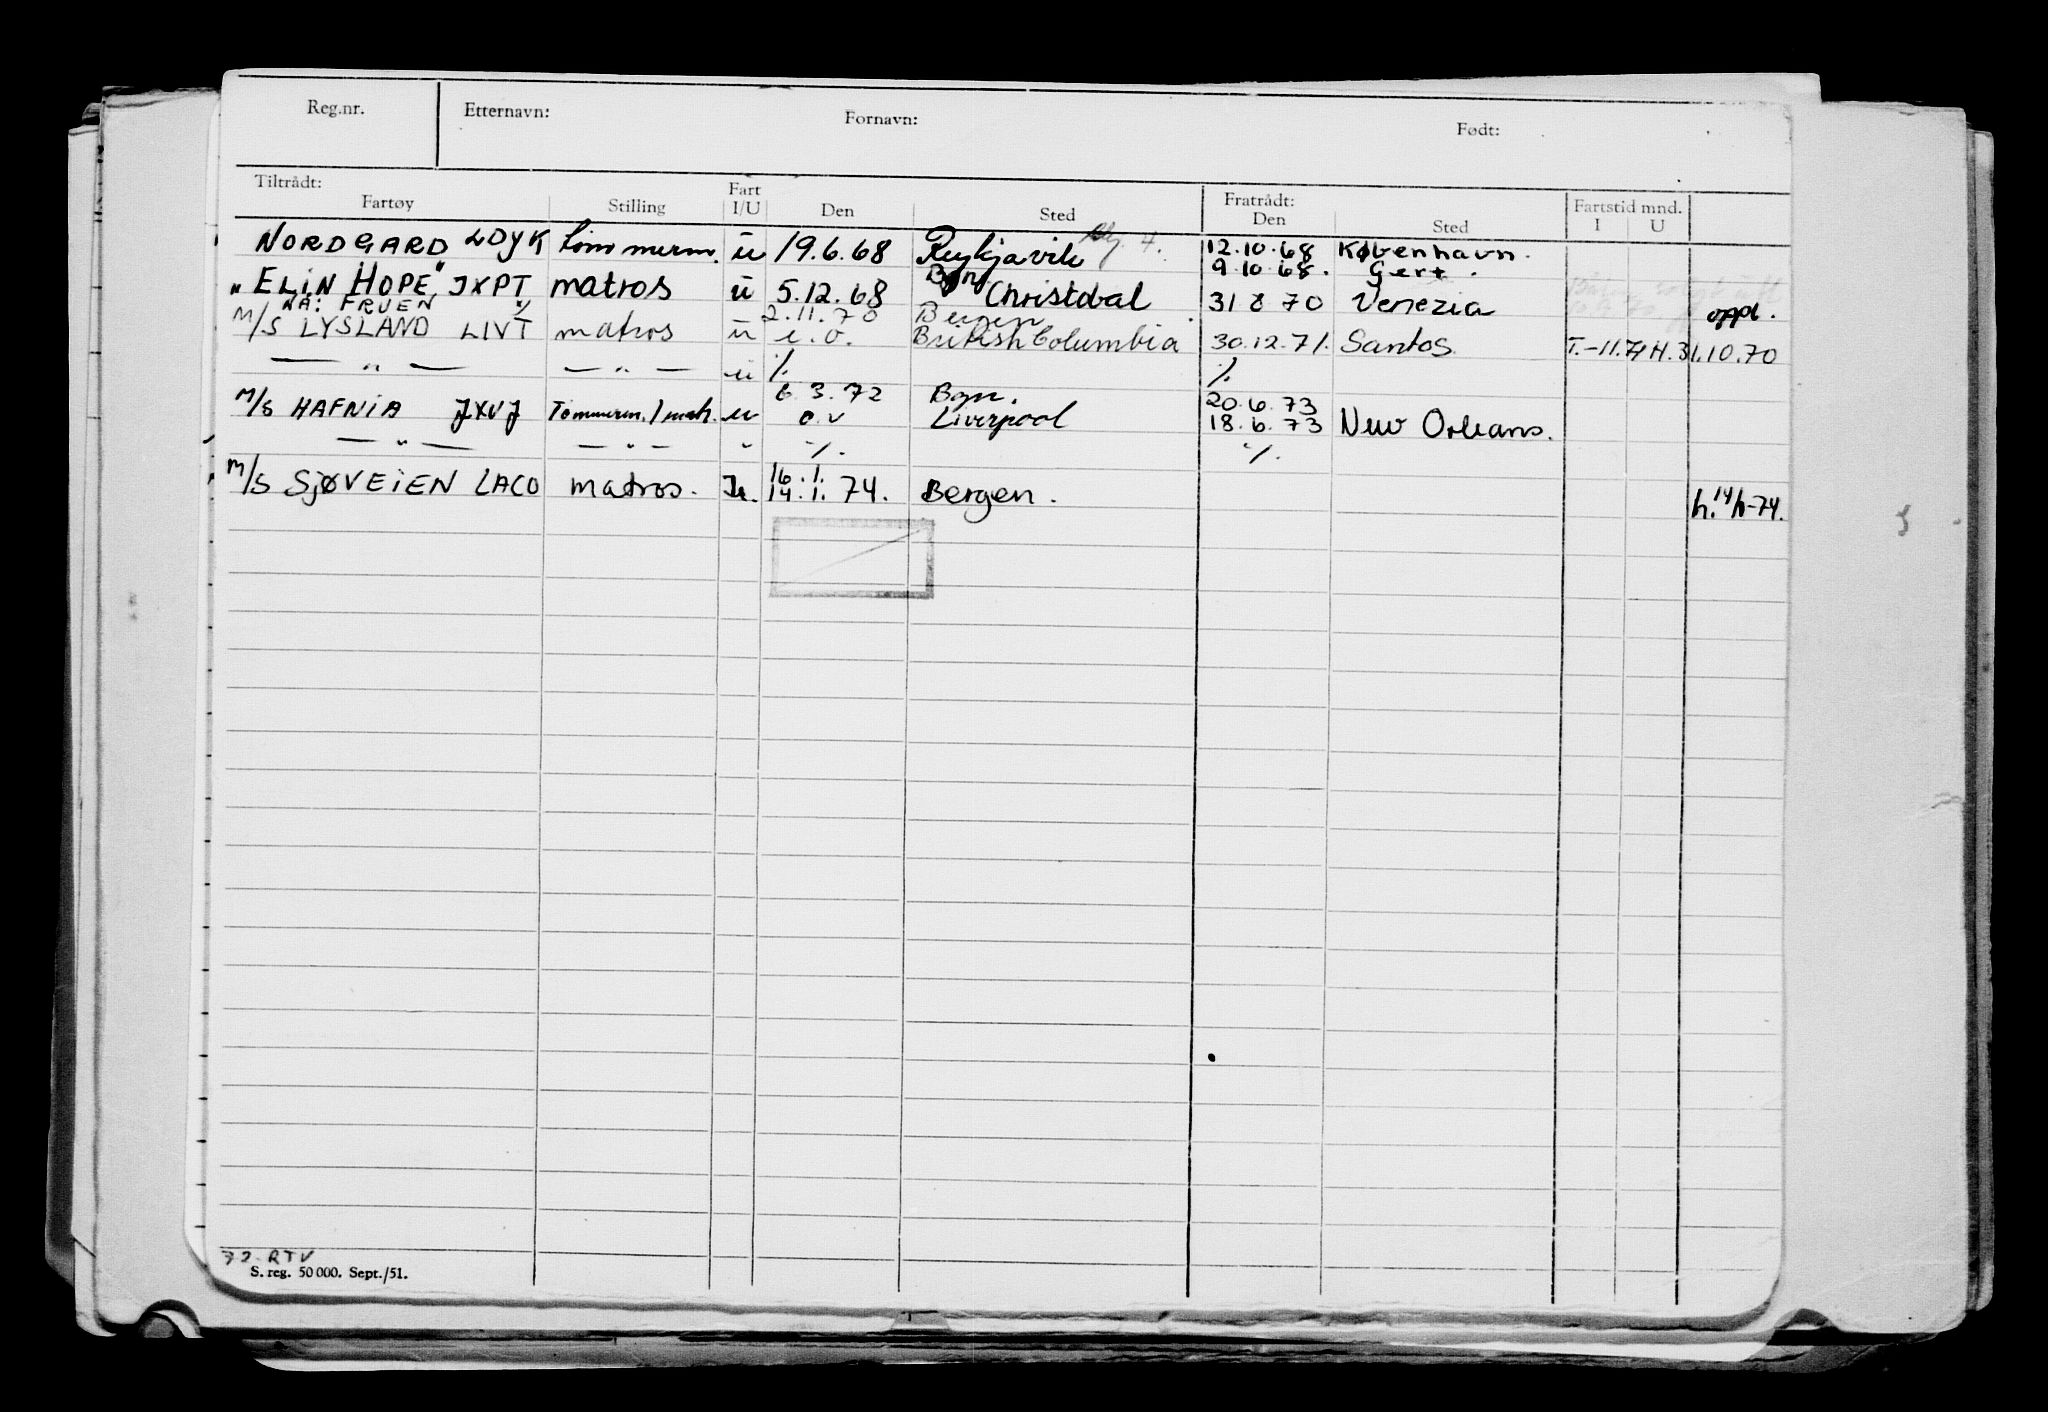 Reg.nr. Etternavn: Fornavn: Født:
Tiltrådt: Fart Fratrådt: Fartstid mnd.
Fartøy Stilling I/U Den Sted Den Sted I U
NORDGARD LDYK tømmerm. u 19.6.68 Reykjavik 4. 12.10.68 København.
9.10.68. Gert.
Bgn.
"ELIN HOPE" JXPT matros u 5.12.68 Christobal 31 8 70 Venezia oppl.
NÅ: FRUEN 2.11.70 Bergen
M/S LYSLAND LIVT matros u i.o. British Columbia 30.12.71. Santos T.-11.71 H.31.10.70
— " — — " — u %. %.
6.3.72 Bgn. 20.6.73
M/S HAFNIA JXVJ Tømmerm./matr. u o.v Liverpool 18.6.73 New Orleans.
— " — — " — " %. %.
16.1.
M/S SJØVEIEN LACO matros. U. 14.1.74. Bergen. h.14/1-74.
72. RTV
S. reg. 50 000. Sept./51.